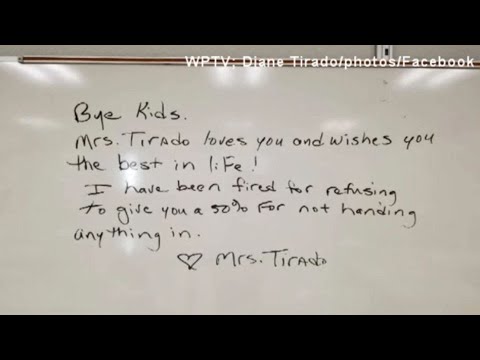 WPTV; Diane Tirado/photos/Facebook
Bye Kids.
Mrs. Tirado loves you and wishes you
the best in life!
I have been fired for refusing
to give you a 50% for not handing
anything in.
♡ Mrs. Tirado